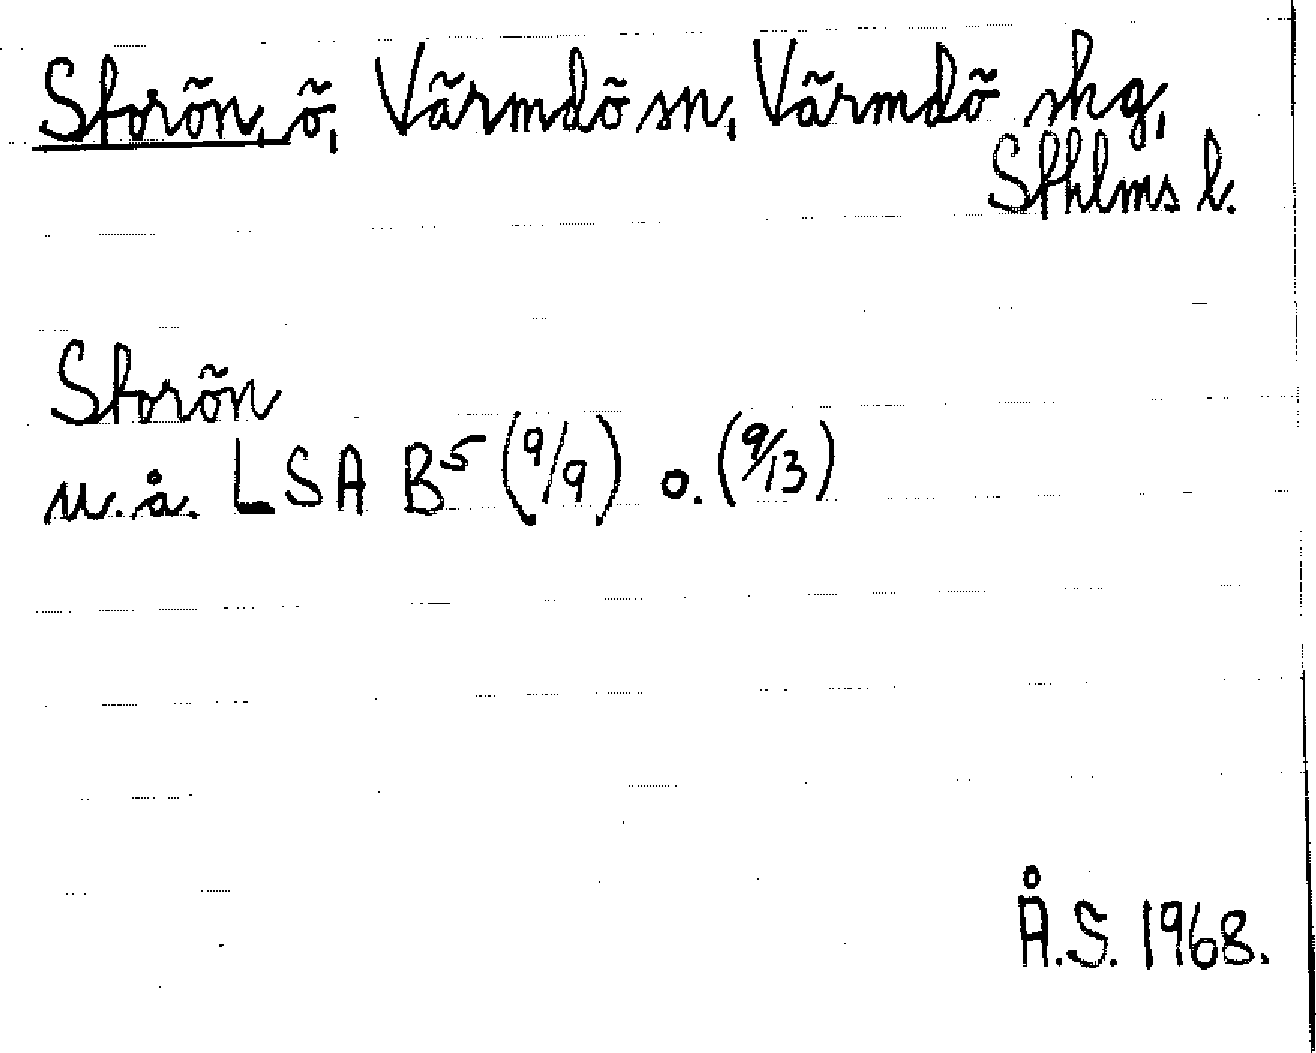 Storön, ö, Värmdö sn, Värmdö skg,
Sthlms l.
Storön
u.å. LSA B5 (9/9) o. (9/13)
Å.S. 1968.